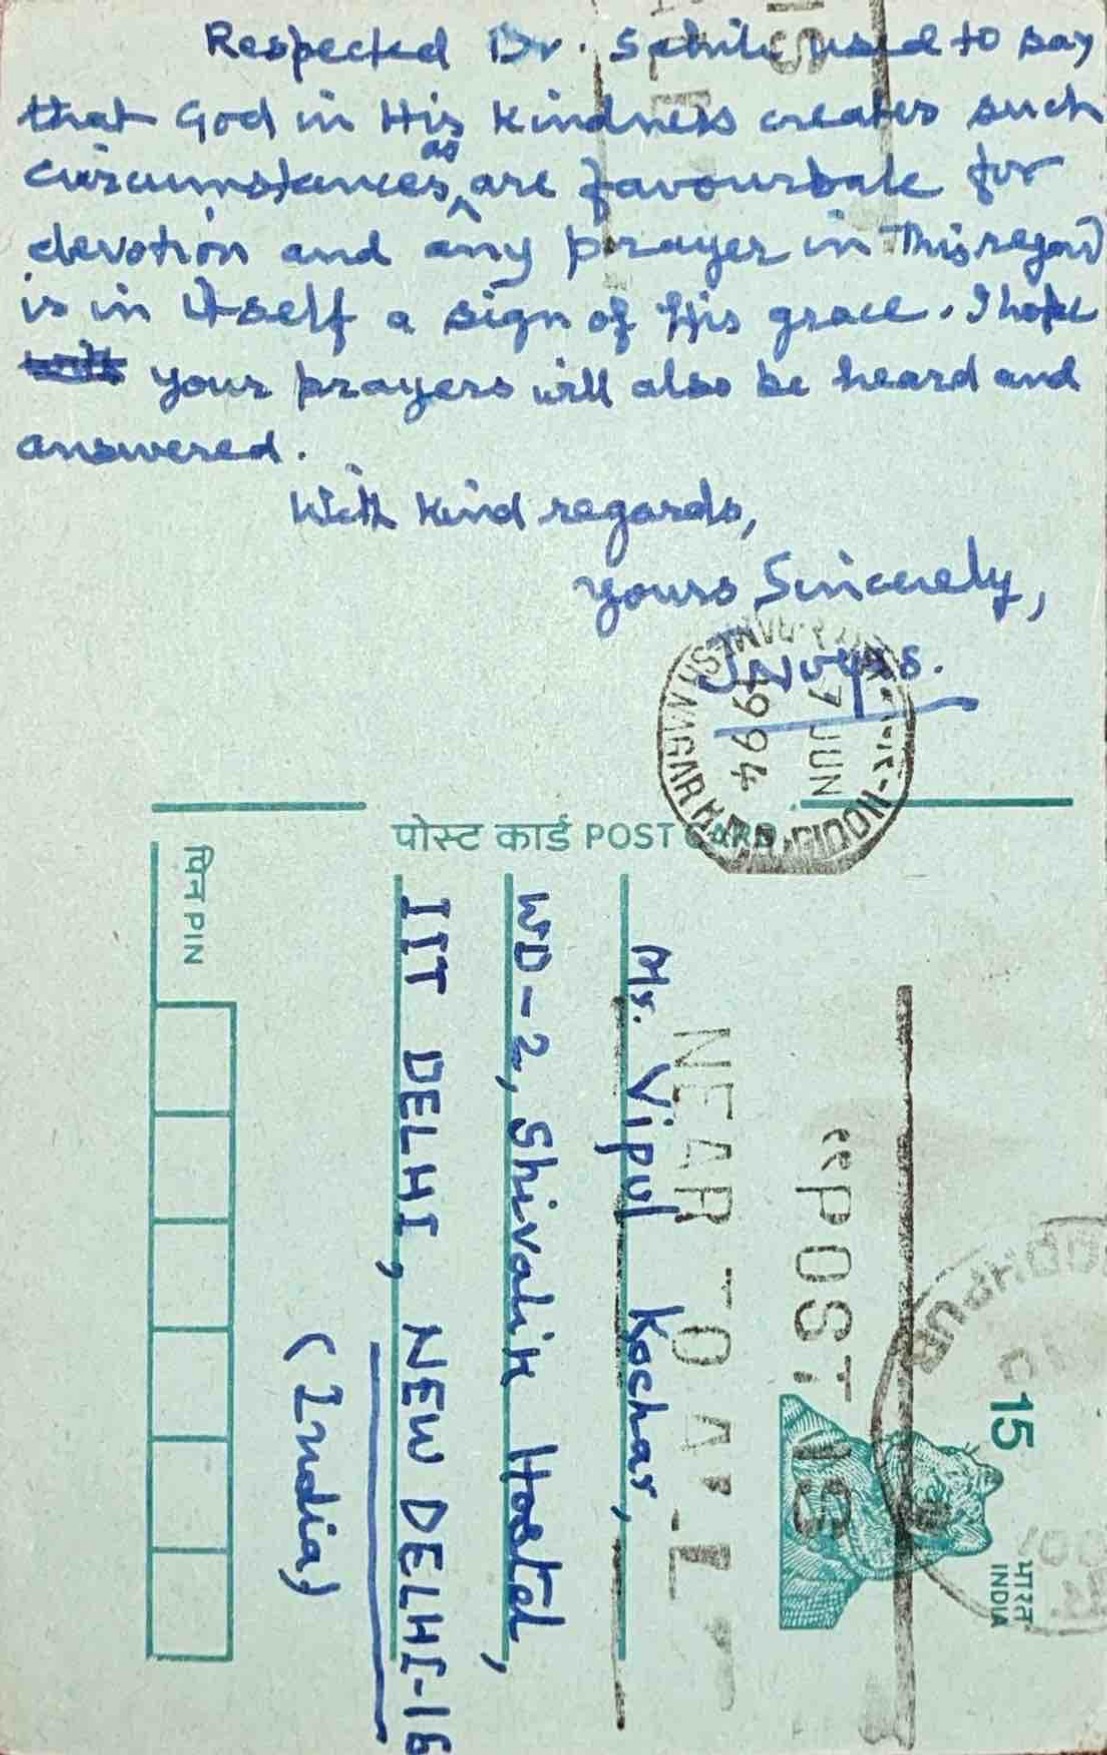 Respected Dr. Sahib used to say
that God in His kindness creates such
as
circumstances are favourbale for
devotion and any prayer in This regard
is in itself a sign of His grace. I hope
your prayers will also be heard and
answered.
With kind regards,
Yours Sincerely,
पोस्ट कार्ड POST CARD
पिन PIN
Mr. Vipul Kochar,
WD-2, Shivalik Hostel,
IIT DELHI, NEW DELHI-16
(India)
15
भारत
INDIA
"POST IS
NEAR TO ALL
JODHPUR
7 JUN
1994